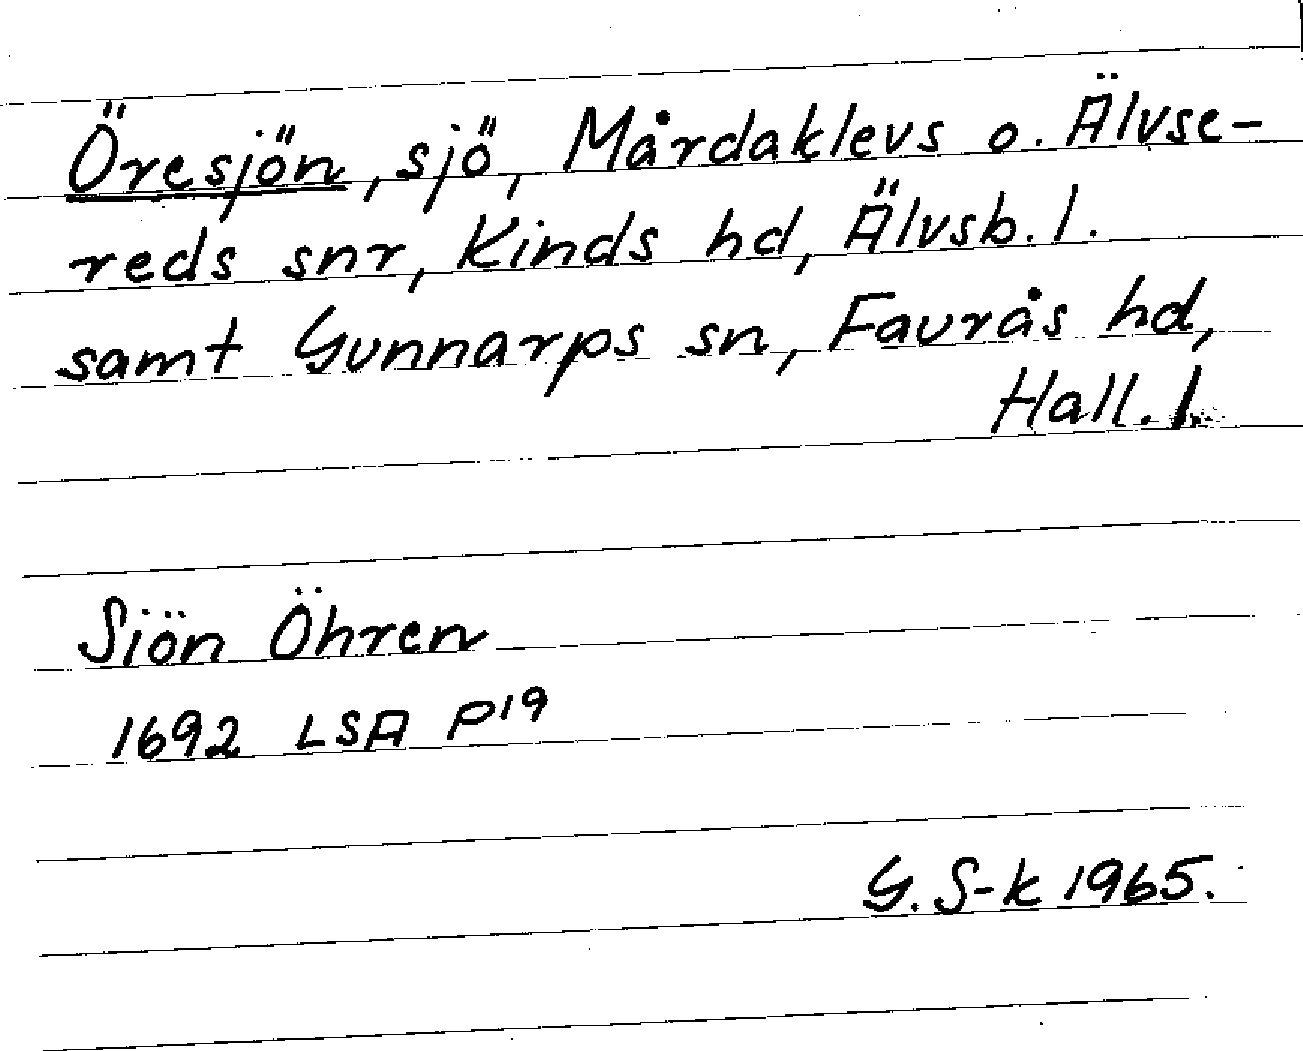 Öresjön, sjö, Mårdaklevs o. Älvse-
reds snr, Kinds hd, Älvsb. l.
samt Gunnarps sn, Faurås hd,
Hall. l.
Siön Öhren
1692 LSA P19
G. S-k 1965.